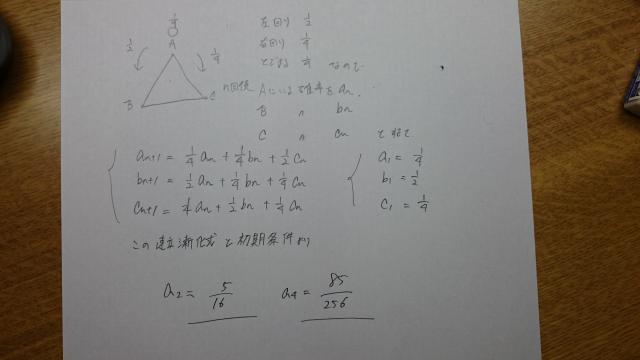 1/4
A
1/2
1/4
B
C
左回り 1/2
右回り 1/4
とどまる 1/4 なので
n回後 Aにいる確率をan
B 〃 bn
C 〃 cn とすると
an+1 = 1/4 an + 1/4 bn + 1/2 cn
bn+1 = 1/2 an + 1/4 bn + 1/4 cn
cn+1 = 1/4 an + 1/2 bn + 1/4 cn
a1 = 1/4
b1 = 1/2
c1 = 1/4
この連立漸化式と初期条件より
a2 = 5/16 a4 = 85/256